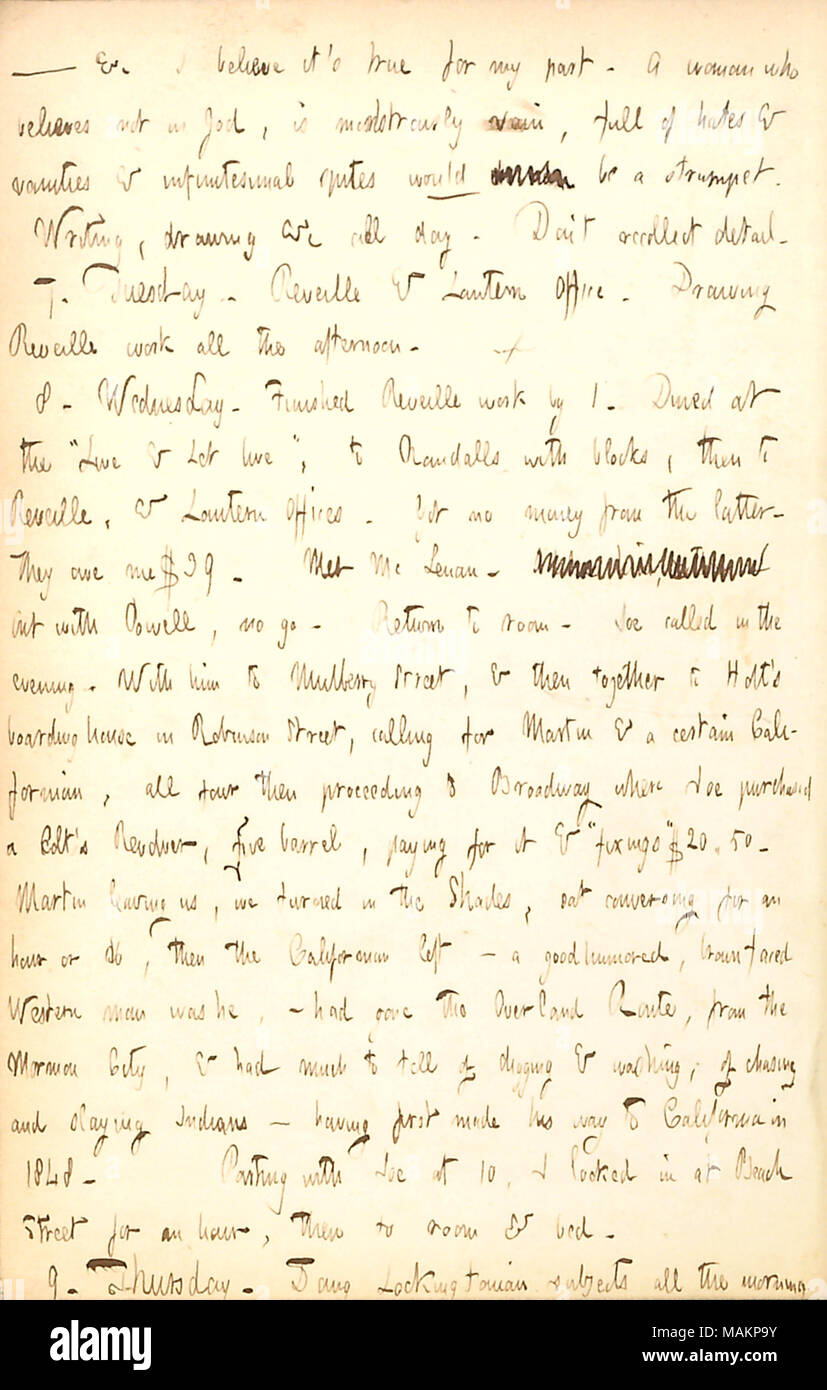 —— &c. I believe it's true for my part. A woman who
believes not in God, is monstrously vain, full of hates &
vanities & infinitesimal spites would be a strumpet.
Writing, drawing &c all day. Don't recollect detail.
7. Tuesday. Reveille & Lantern Office. Drawing
Reveille work all the afternoon.
8. Wednesday. Finished Reveille work by 1. Dined at
the "Live & Let live", to Randalls with blocks, then to
Reveille, & Lantern Offices. Got no money from the latter.
They owe me $39. Met Mc Lenan.
out with Powell, no go. Return to room. Joe called in the
evening. With him to Mulberry Street, & then together to Holt's
boarding house in Robinson Street, calling for Martin & a certain Cali-
fornian, all four then proceeding to Broadway where Joe purchased
a Colt's Revolver, five barrel, paying for it & "fixings" $20.50.
Martin leaving us, we turned in the Shades, sat conversing for an
hour or so, then the Californian left — a goodhumored, brown faced
Western man was he, — had gone the Overland Route, from the
Mormon City, & had much to tell of digging & washing, of chasing
and slaying Indians — having first made his way to California in
1848. Parting with Joe at 10, I looked in at Beach
Street for an hour, then to room & bed.
9. Thursday. Doing subjects all the morning
alamy
Image ID: MAKP9Y
www.alamy.com